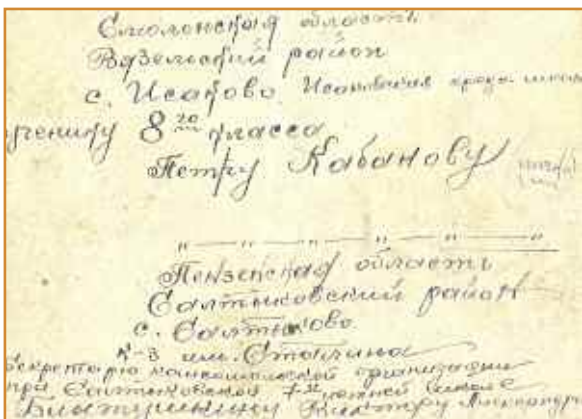 Смоленская область
Вяземский район
с. Исаково. Исаковская средн. школа
ученику 8го класса
Петру Кабанову
" — " — " — " — " — "
Пензенская область
Салтыковский район
с. Салтыково
к-з им. Сталина
Секретарю комсомольской организации
при Салтыковской 7-й школе
Виктору